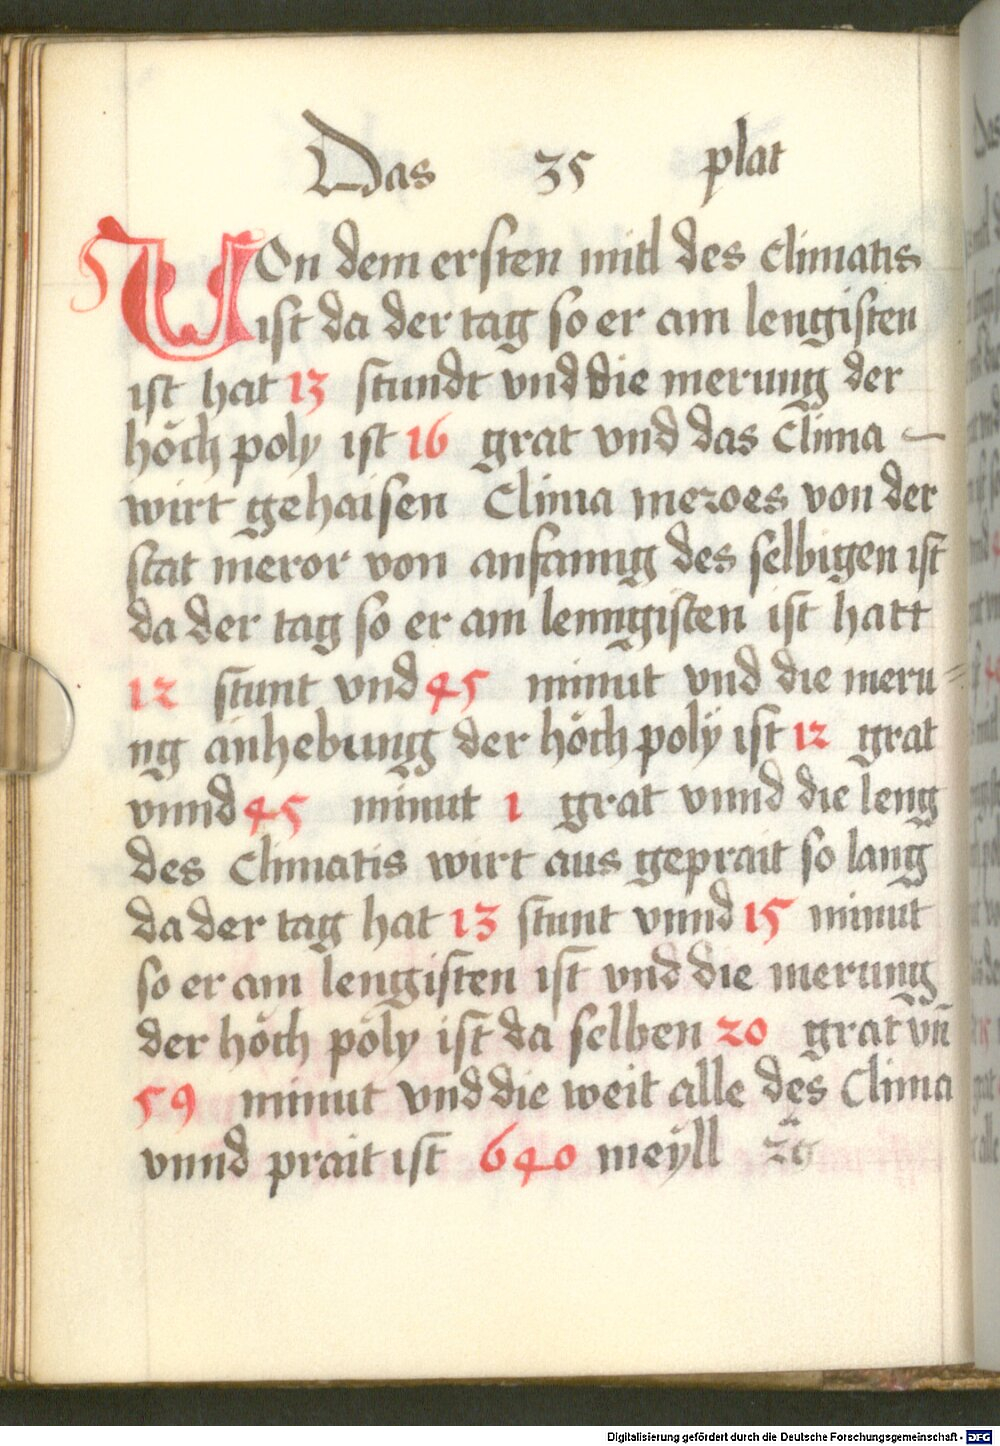 Das 35 plat
VOn dem ersten mitl des Climatis
ist da der tag so er am lengisten
ist hat 13 stundt vnd die merung der
höch poly ist 16 grat vnd das Clima
wirt gehaisen Clima meroes von der
stat meror von anfanng des selbigen ist
da der tag so er am lenngisten ist hatt
12 stunt vnd 45 minut vnd die meru=
ng anhebung der höch polÿ ist 12 grat
vnnd 45 minut 1 grat vnnd die leng
des Climatis wirt aus geprait so lang
da der tag hat 13 stunt vnnd 15 minut
so er am lengisten ist vnd die merung
der höch poly ist da selben 20 grat vn̄
59 minut vnd die weit alle des Clima
vnnd prait ist 640 meÿll
Digitalisierung gefördert durch die Deutsche Forschungsgemeinschaft - DFG